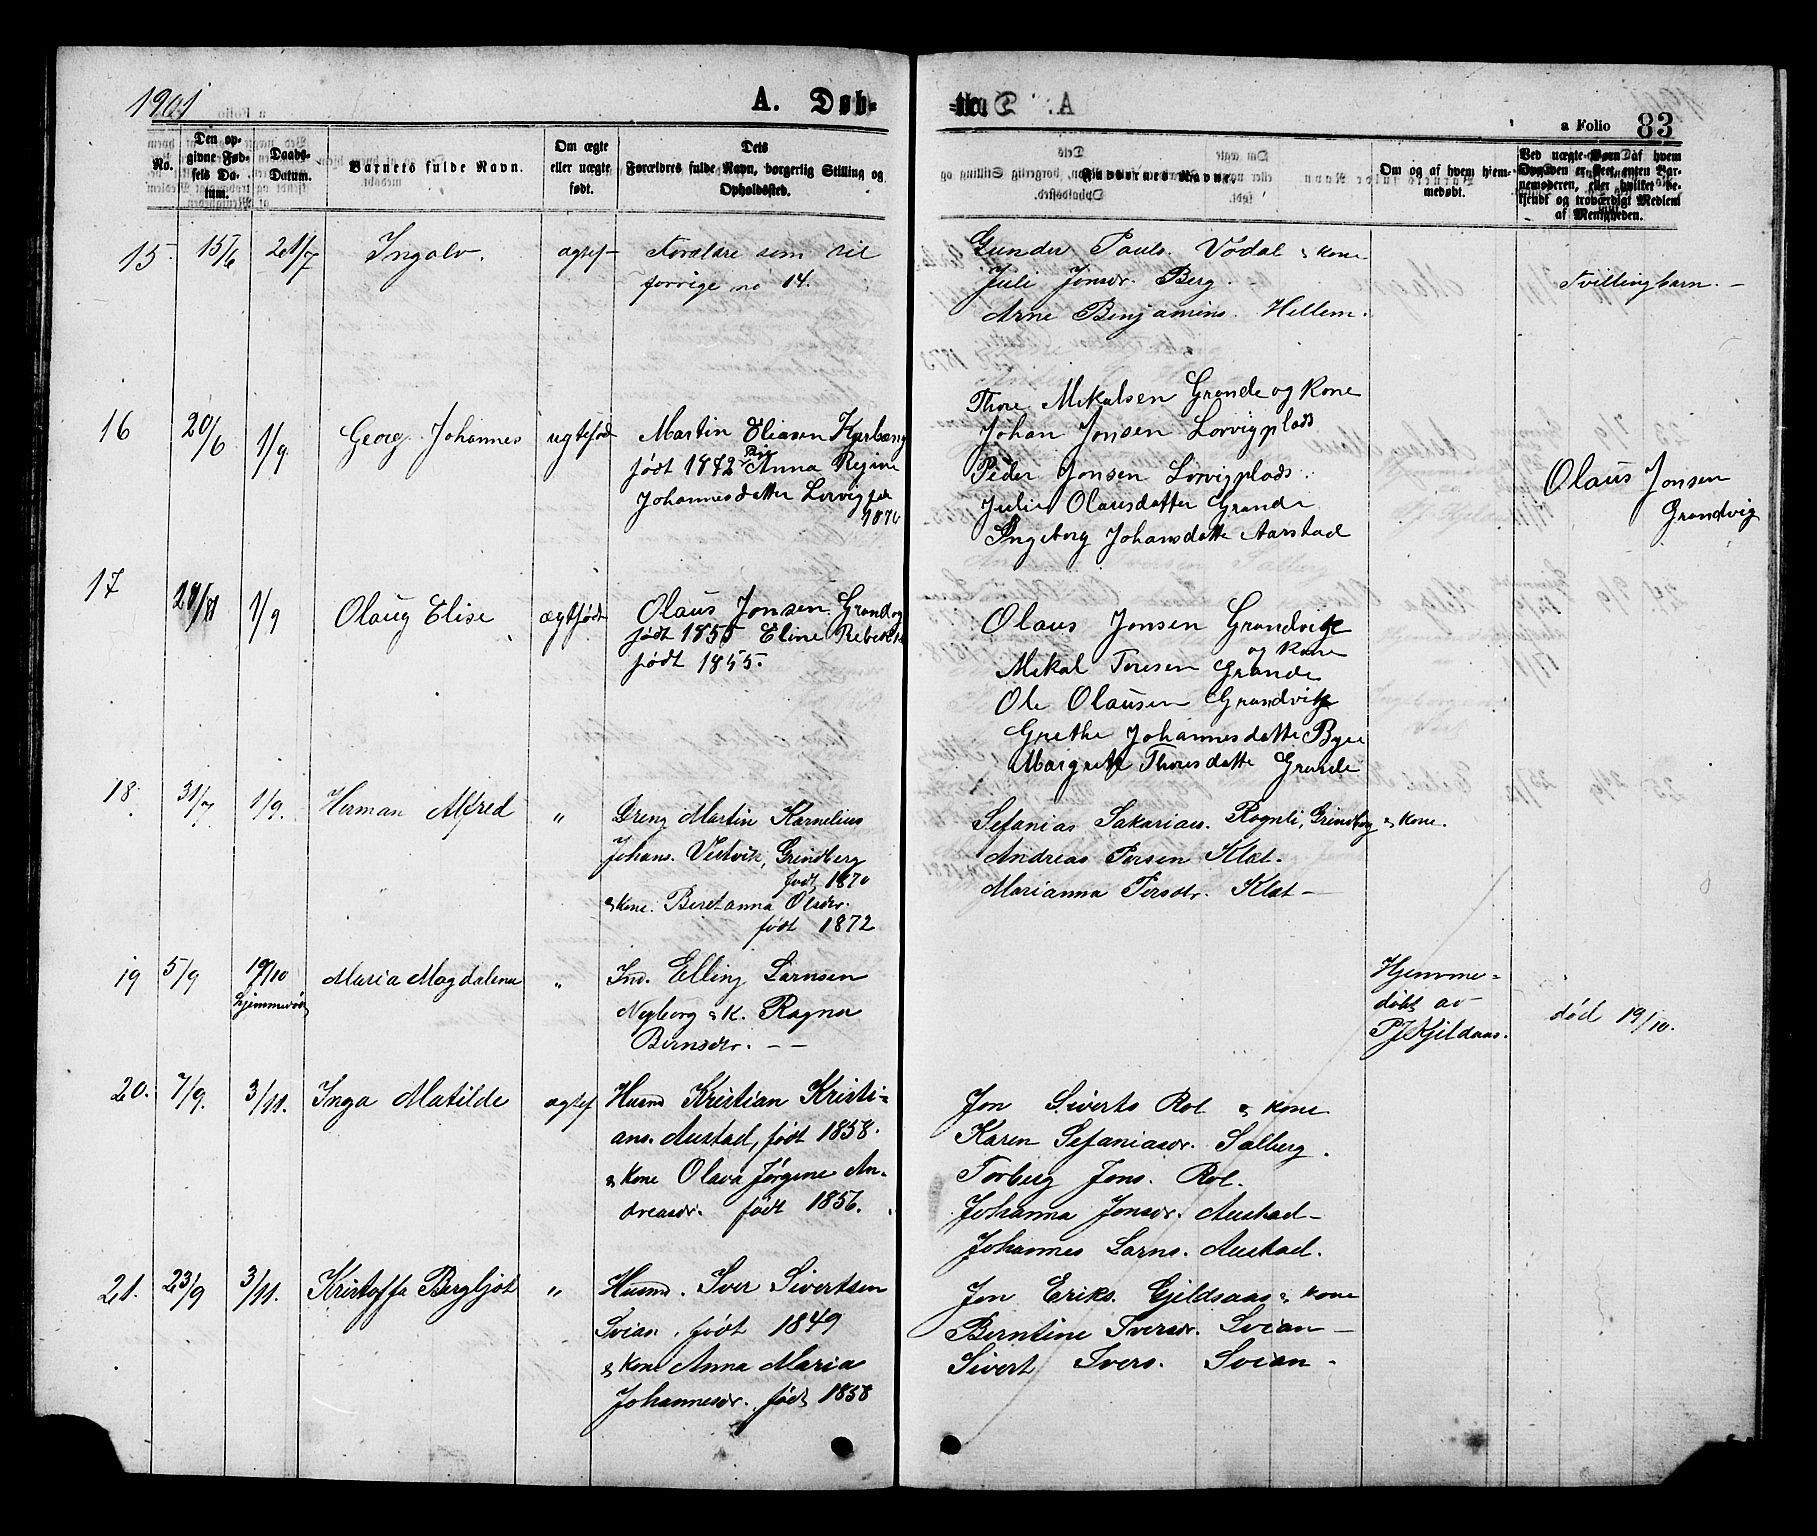 1901
A. Døb-
te.
a Folio 83
No.
Den op-
givne Fød-
sels Da-
tum.
Daabs-
Datum.
Barnets fulde Navn.
Om ægte
eller uægte
født.
Dets
Forældres fulde Navn, borgerlig Stilling og
Opholdssted.
Faddernes Navne.
Om og af hvem hjem-
medøbt.
Ved uægte Børn af hvem
Opgaven er skeet, enten Bar-
nemoderen, eller hvilket be-
kjendt og troværdigt Medlem
af Menigheden.
15. 15/6 21/7 Ingolv. ægtef-
Foreldre som til
forrige no 14.
Gunder Pauls. Vodal & kone
Juli Jonsdr. Berg.
Arne Benjamins. Hellem.
Tvillingbarn.
16 20/6 1/9 Georg Johannes ugtefød
Martin Eliasen
født 1872 Pig Anna Regine
Johannesdatter Lorvig før
1876
Thore Mekalsen Grande og kone
Johan Jonsen Lorvigplads
Peder Jonsen Lorvigplads.
Julie Olausdatter Grande
Ingeborg Johansdatte Aarstad
Olaus Jonsen
Grandvig
17 1/9 Olaug Elise ægtfødt
Olaus Jonsen
født 1855 Eline
født 1855.
Olaus Jonsen Grandvik
og kone
Mekal Toresen Grande
Ole Olausen Grandvik
Grethe Johannesdatte Bye
Margrete Thoresdatte Grande
18. 31/7 1/9. Herman Alfred „
Dreng Martin Kornelius
Johans. Vestvik, Grindberg
født 1870
& kone. Beretanna Olsdr.
født 1872
Sefanias Sakarias. Rognli, Grindberg & kone.
Andreas Persen Klæt.
Marianna Persdr. Klæt
19 5/9 19/10 Maria Magdalena „
hjemmedøbt
Ind. Elling Larnsen
Nyborg & k. Ragna
Bernsdr.
Hjemme-
døbt av
P J Kjeldaas.
død 19/10.
20. 7/9. 3/11. Inga Matilde ægtef
Husmd Kristian Kristi-
ans. Austad, født 1858.
& kone Olava Jørgine An-
dreasdr. født 1856.
Jon Siverts Rol & kone
Karen Sefaniasdr. Salberg.
Torberg Jons. Rol.
Johanna Jonsdr. Austad
Johannes Larns. Austad.
21. 23/9 3/11. Kristoffa Bergljot „
Husmd. Iver Sivertsen
Svian, født 1849
& kone Anna Maria
Johannesdr. født 1858
Jon Eriks. Gjeldsaas & kone
Berntine Iversdr. Svian
Sivert Ivers. Svian